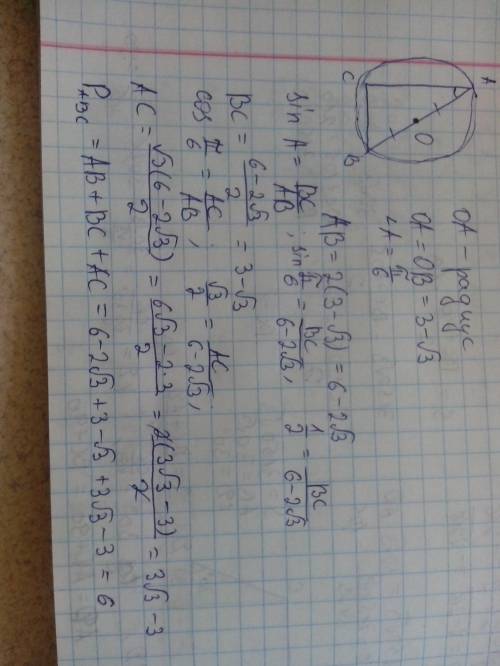 A
C
O
B
OA – радиус
OA = OB = 3 - √3
∠A = π/6
AB = 2(3 - √3) = 6 - 2√3
sin A = BC/AB ; sin π/6 = BC/(6 - 2√3) ; 1/2 = BC/(6 - 2√3)
BC = (6 - 2√3)/2 = 3 - √3
cos π/6 = AC/AB ; √3/2 = AC/(6 - 2√3) ;
AC = √3(6 - 2√3)/2 = (6√3 - 2·3)/2 = 2(3√3 - 3)/2 = 3√3 - 3
P_ABC = AB + BC + AC = 6 - 2√3 + 3 - √3 + 3√3 - 3 = 6